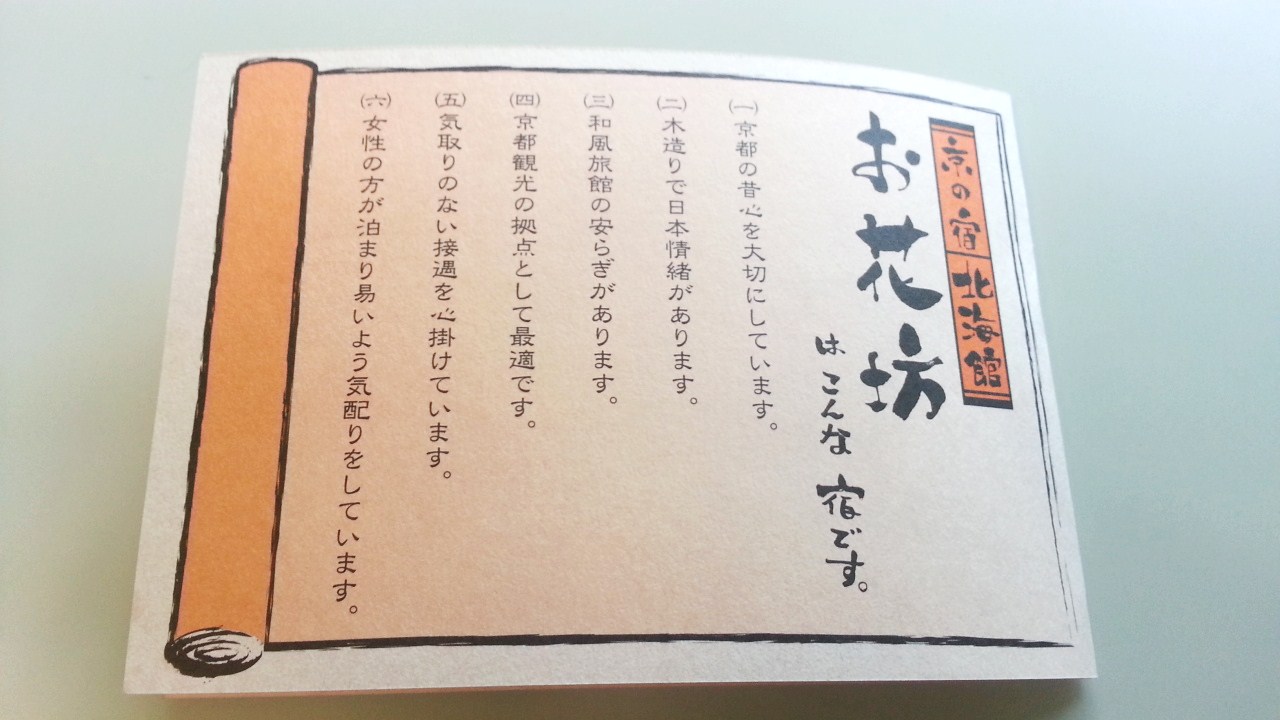 京の宿 北海館
お花坊
は こんな 宿です。
㈠京都の昔心を大切にしています。
㈡木造りで日本情緒があります。
㈢和風旅館の安らぎがあります。
㈣京都観光の拠点として最適です。
㈤気取りのない接遇を心掛けています。
㈥女性の方が泊まり易いよう気配りをしています。